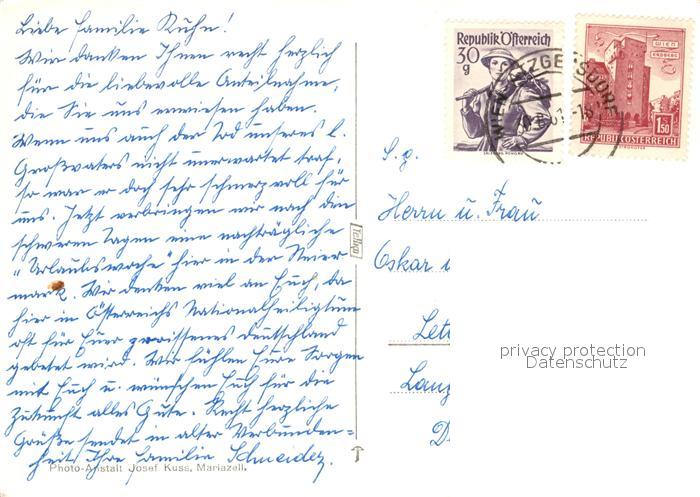 Liebe Familie Kuhn!
Wir danken Ihnen recht herzlich
für die liebevolle Anteilnahme,
die Sie uns erwiesen haben.
Wenn uns auch der Tod unseres l.
Großvaters nicht unerwartet traf,
so war er doch sehr schmerzvoll für
uns. Jetzt verbringen wir nach den
schweren Tagen eine nachträgliche
"Urlaubswoche" hier in der Steier
mark. Wir denken viel an Euch, da
hier in Österreichs Nationalheiligtum
oft für Euer zerrissenes Deutschland
gebetet wird. Wir fühlen Eure Sorgen
mit Euch u. wünschen Euch für die
Zukunft alles Gute. Recht herzliche
Grüße sendet in alter Verbunden=
heit Ihre Familie Schneider.
Photo-Anstalt Josef Kuss, Mariazell.
Republik Österreich
30
g
WIEN
ERDBERG
1.50
REPUBLIK ÖSTERREICH
WIEN ATZGERSDORF
S. g.
Herrn u. Frau
Oskar
Let
Lanz
D
privacy protection
Datenschutz